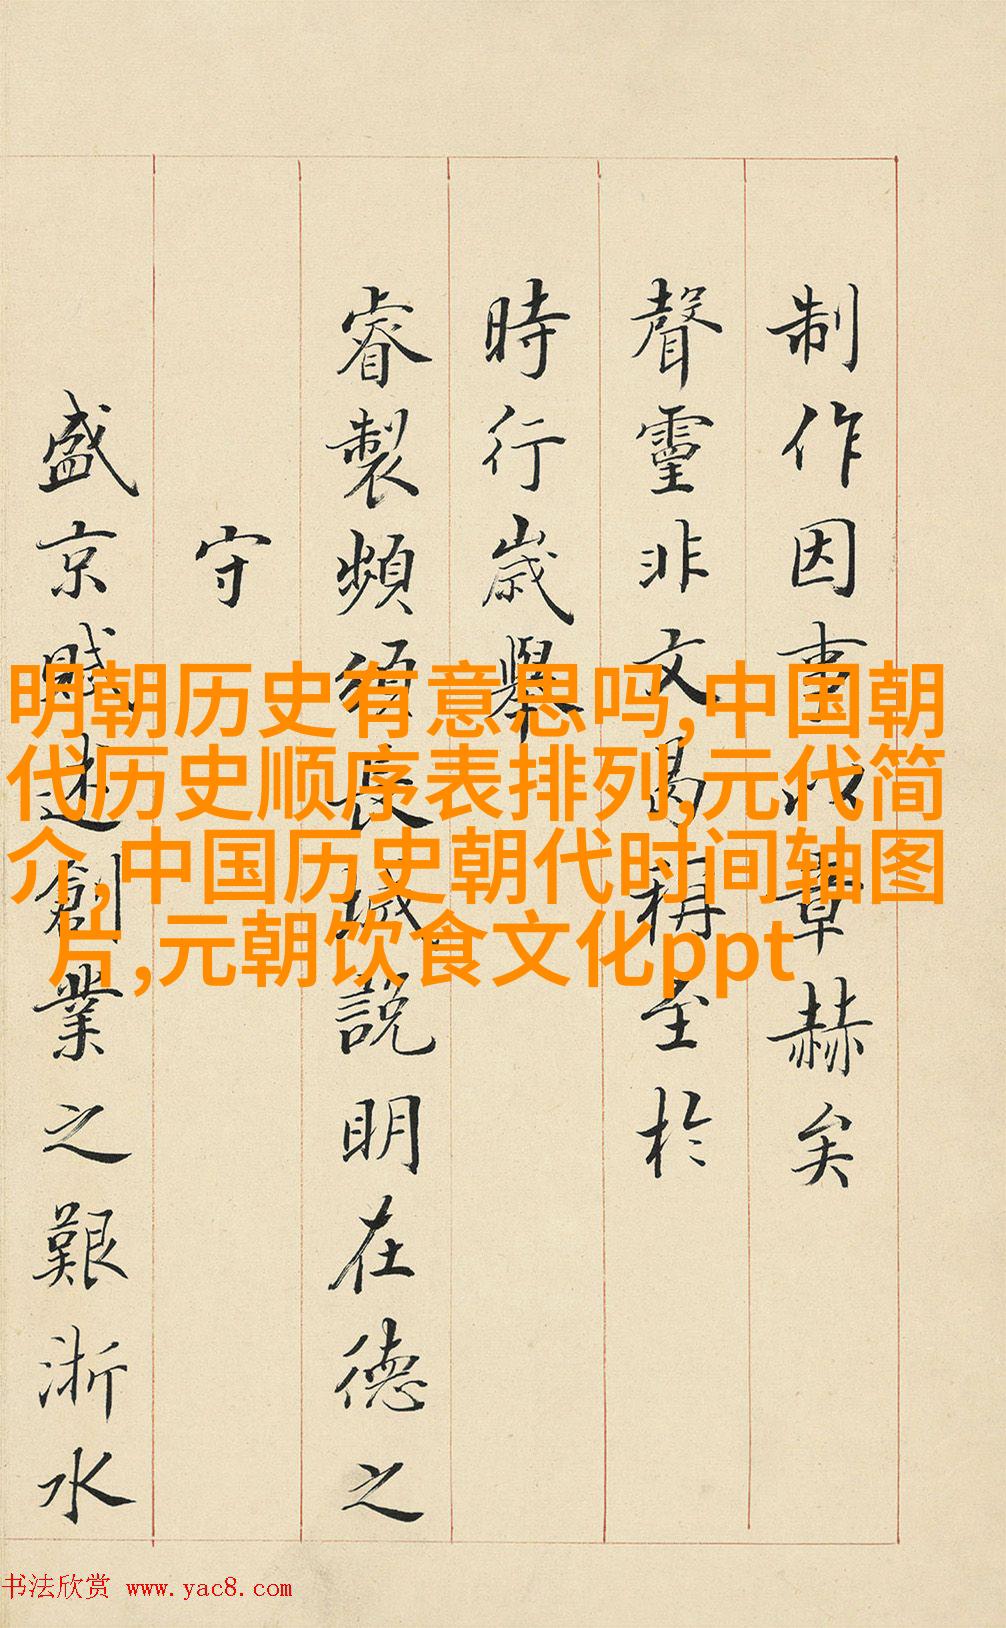 制作因事以章赫矣
聲靈非文曷稱至於
時行歲舉
睿製頻頒長城說明在德之
守
盛京賦述創業之艱浙水
明朝历史有意思吗,中国朝
代历史顺序表排列,元代简
介,中国历史朝代时间轴图
片,元朝饮食文化ppt
书法欣赏 www.yac8.com